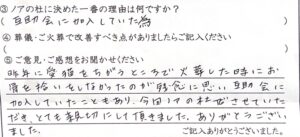 ③ノアの社に決めた一番の理由は何ですか?
( 互助会に加入していた為 )
④葬儀・火葬で改善すべき点がありましたらご記入ください
( )
⑤ご意見・ご感想をお聞かせください
昨年に愛猫をちがうところで火葬した時にお
骨を拾いをしなかったのが残念に思い互助会に
加入していたこともあり、今回ノアの社さでさせていた
だき、とても親切にして頂きました。ありがとうござい
ました。
ご記入ありがとうございました。